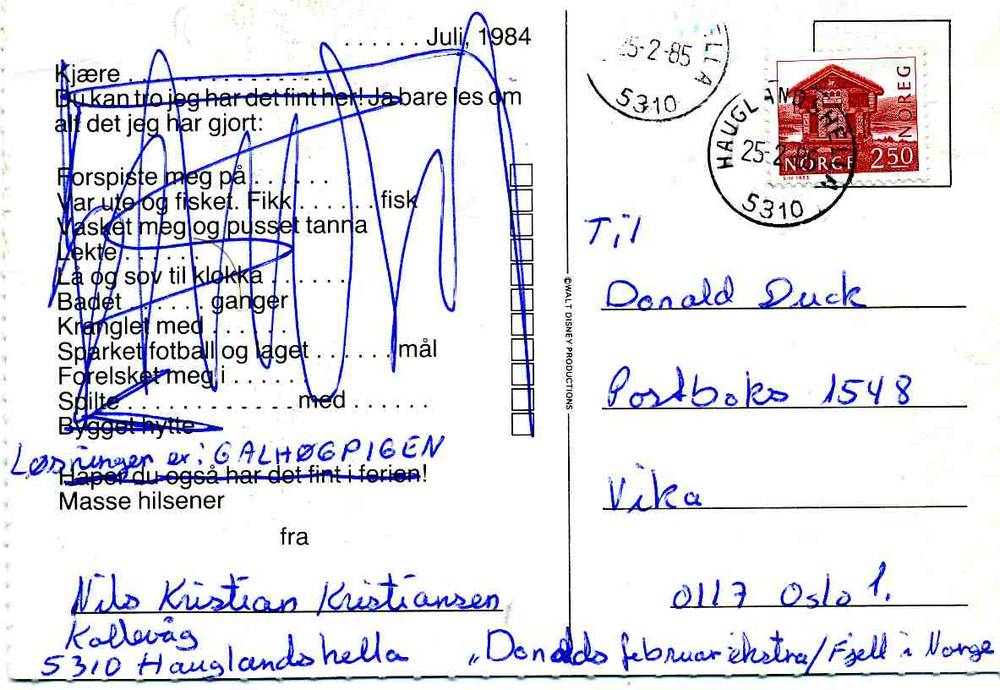 . . . . . . Juli, 1984
Kjære . . . . . . . . . . . . . . . . . . .
Du kan tro jeg har det fint her! Ja bare les om
alt det jeg har gjort:
Forspiste meg på . . . . . .
Var ute og fisket. Fikk . . . . . . fisk
Vasket meg og pusset tanna
Lekte . . . . . .
Lå og sov til klokka . . . . . .
Badet . . . . . . ganger
Kranglet med . . . . . .
Sparket fotball og laget . . . . . . mål
Forelsket meg i . . . . . .
Spilte . . . . . . . . . . . . . med . . . . . .
Bygget hytte
Løsningen er: GALHØGPIGEN
Håper du også har det fint i ferien!
Masse hilsener
fra
Nils Kristian Kristiansen
Kallevåg
5310 Hauglandshella
©WALT DISNEY PRODUCTIONS
ELLA
25-2-85
5310
HAUGLANDSHELLA
25-2-85
5310
NOREG
NORGE 250
Til
Donald Duck
Postboks 1548
Vika
0117 Oslo 1.
"Donalds februar ekstra/Fjell i Norge